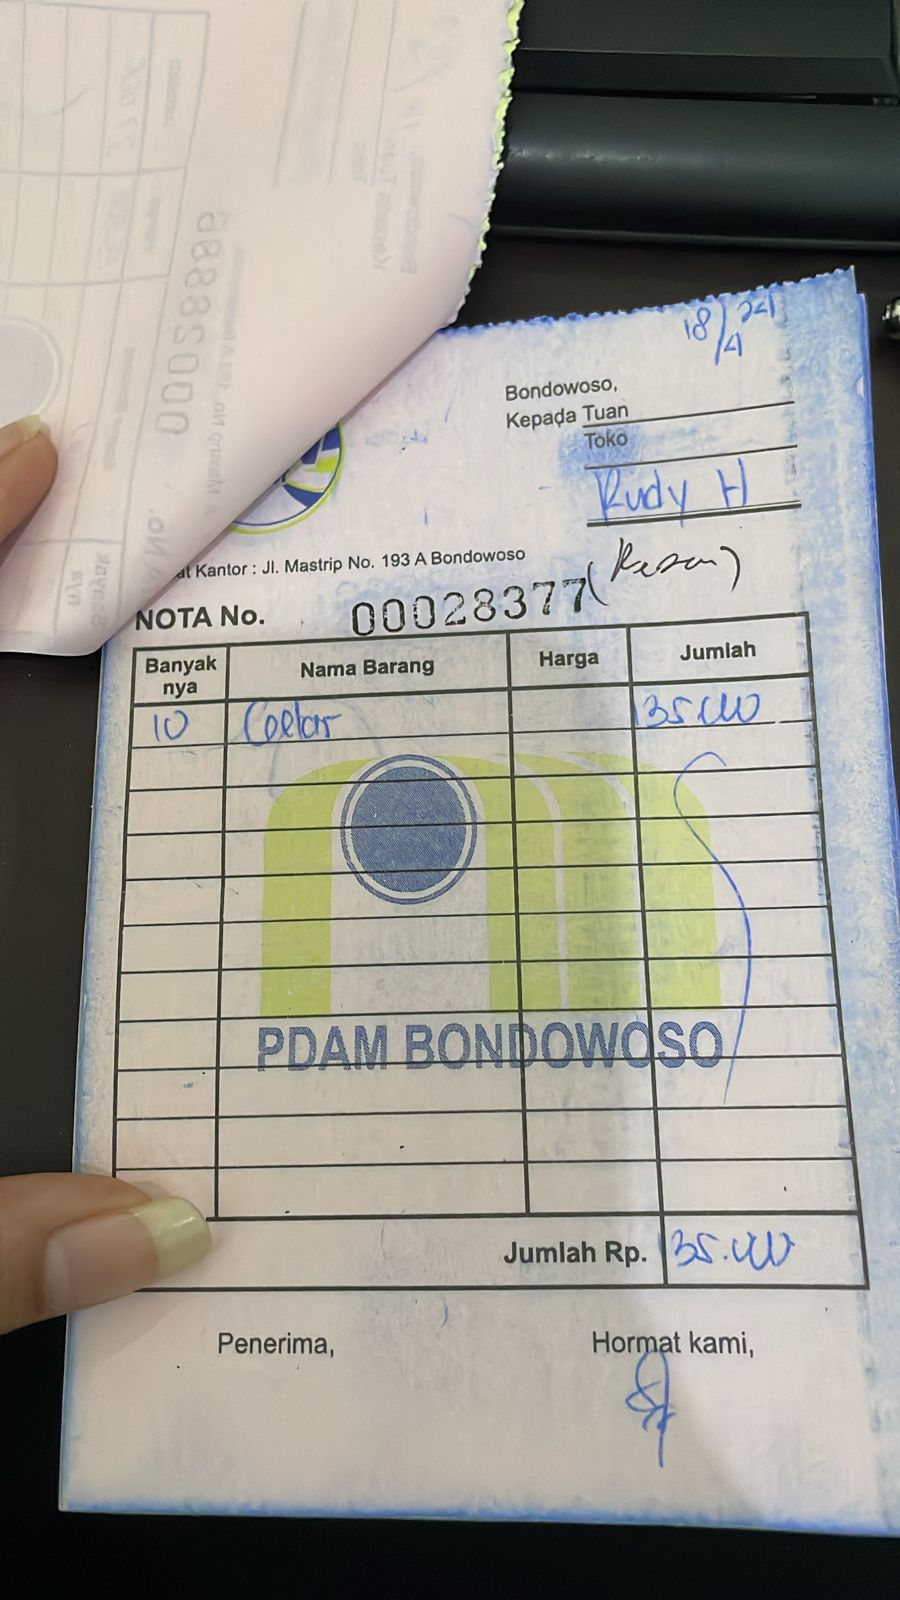 18/4 24
Bondowoso,
Kepada Tuan
Toko
Rudy H
at Kantor : Jl. Mastrip No. 193 A Bondowoso
NOTA No. 00028377
Banyak nya Nama Barang Harga Jumlah
10 135.000
PDAM BONDOWOSO
Jumlah Rp. 135.000
Penerima, Hormat kami,